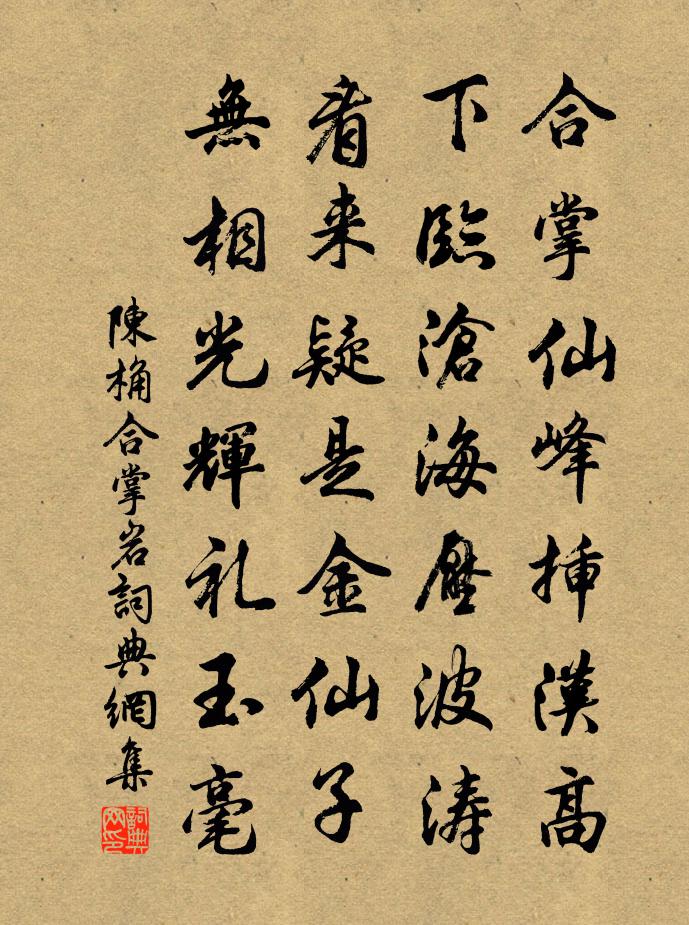 合掌仙峰揷漢高
下臨滄海壓波涛
看来疑是金仙子
無相光輝礼玉毫
陳桷合掌岩詞典網集
詞典网印